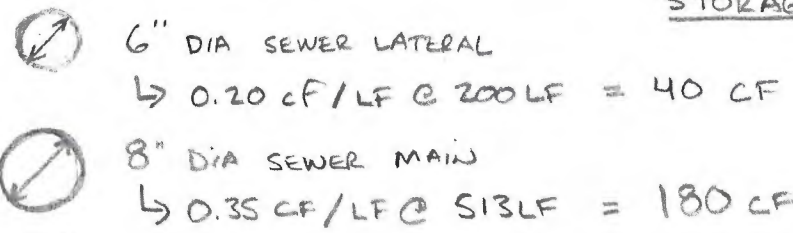 6" DIA SEWER LATERAL
↳ 0.20 CF/LF @ 200LF = 40 CF
8" DIA SEWER MAIN
↳ 0.35 CF/LF @ 513LF = 180 CF